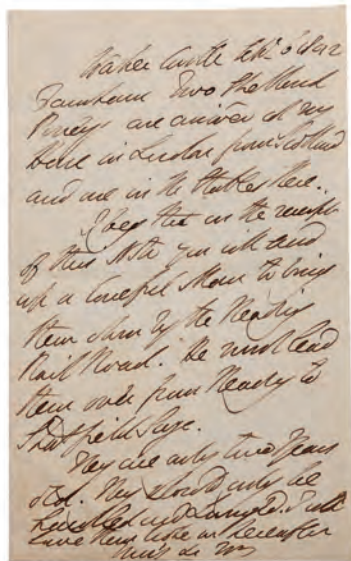 Walmer Castle Feb: 6 1842
Farnham Two Shetland
Poneys are arrived at my
House in London from Scotland
and are in the Stables there.
I beg that on the receipt
of this Note you will send
up a Careful Man to bring
them down by the Reading
Rail Road. He must lead
them over from Reading to
Stratfield Saye.
They are only two Years
old. They should only be
handled and Lounged. I will
have them broke in hereafter